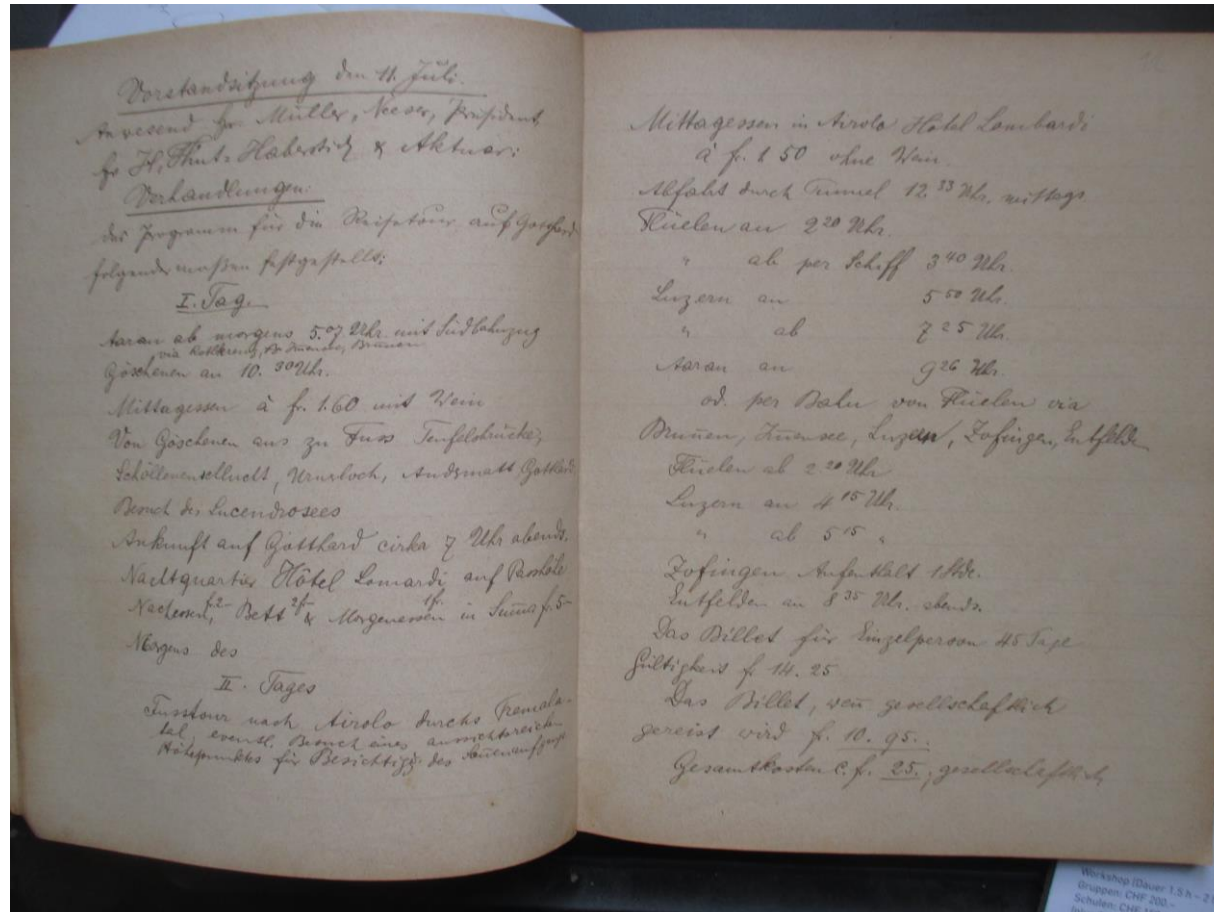 Vorstandsitzung den 11. Juli.
Anwesend Hr. Müller, Neeser, Präsident,
Hr H, Thut-Haberstich & Aktuar:
Verhandlungen:
das Programm für die Reisetour auf Gotthard
folgendermaßen festgestellt:
I. Tag.
Aarau ab morgens 5.07 Uhr mit Südbahnzug
via Rothkreuz, Immensee, Brunnen
Göschenen an 10.30 Uhr.
Mittagessen à fr. 1.60 mit Wein
Von Göschenen aus zu Fuss Teufelsbrücke,
Schöllenenschlucht, Urnerloch, Andermatt, Gotthard
Besuch des Lucendrosees
Ankunft auf Gotthard cirka 7 Uhr abends.
Nachtquartier Hôtel Lomardi auf Passhöhe
Nachtessen, 2- Bett 2fr & Morgenessen 1fr. in Suma fr. 5-
Morgens des
II. Tages
Fusstour nach Airolo durchs Tremola-
tal, eventl. Besuch eines aussichtsreichen
Höhepunktes für Besichtigg. des Sonnenaufgangs
Mittagessen in Airolo Hotel Lombardi
à fr. 1 50 ohne Wein.
Abfahrt durch Tunnel 12 33 Uhr. mittags
Flüelen an 2 20 Uhr.
" ab per Schiff 3 40 Uhr.
Luzern an 5 50 Uhr.
" ab 7 25 Uhr.
Aarau an 9 26 Uhr.
od. per Bahn von Flüelen via
Brunen, Imensee, Luzern, Zofingen, Entfelden
Flüelen ab 2 20 Uhr
Luzern an 4 15 Uhr.
" ab 5 15 "
Zofingen Aufenthalt 1 Stde.
Entfelden an 8 35 Uhr. abends.
Das Billet für Einzelperson 45 Tage
Gültigkeit fr. 14. 25
Das Billet, wen gesellschaftlich
gereist wird f. 10. 95.
Gesamtkosten c. f. 25., gesellschaftlich
Workshop (Dauer 1.5 h – 2
Gruppen: CHF 200.–
Schulen: CHF